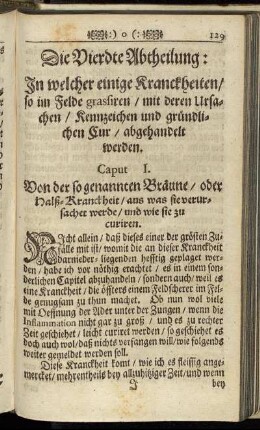 :) o (: 129
Die Vierdte Abtheilung:
In welcher einige Kranckheiten/
so im Felde grassiren / mit deren Ursa-
chen / Kennzeichen und gründli-
chen Cur / abgehandelt
werden.
Caput I.
Von der so genannten Bräune / oder
Halß-Kranckheit / aus was sie verur-
sachet werde / und wie sie zu
curiren.
Nicht allein / daß dieses einer der grösten Zu-
fälle mit ist / womit die an dieser Kranckheit
darnieder liegenden hefftig geplaget wer-
den / habe ich vor nöthig erachtet / es in einem son-
derlichen Capitel abzuhandeln / sondern auch / weil es
eine Kranckheit / die öffters einem Feldscherer im Fel-
de genugsam zu thun machet. Ob nun wol viele
mit Oeffnung der Ader unter der Zungen / wenn die
Inflammation nicht gar zu groß / und es zu rechter
Zeit geschiehet / leicht curiret werden / so geschiehet es
doch auch wol / daß nichts verfangen will / wie folgends
weiter gemeldet werden soll.
Diese Kranckheit komt / wie ich es fleissig ange-
mercket / mehrentheils bey allzuhitziger Zeit / und wenn
J bey